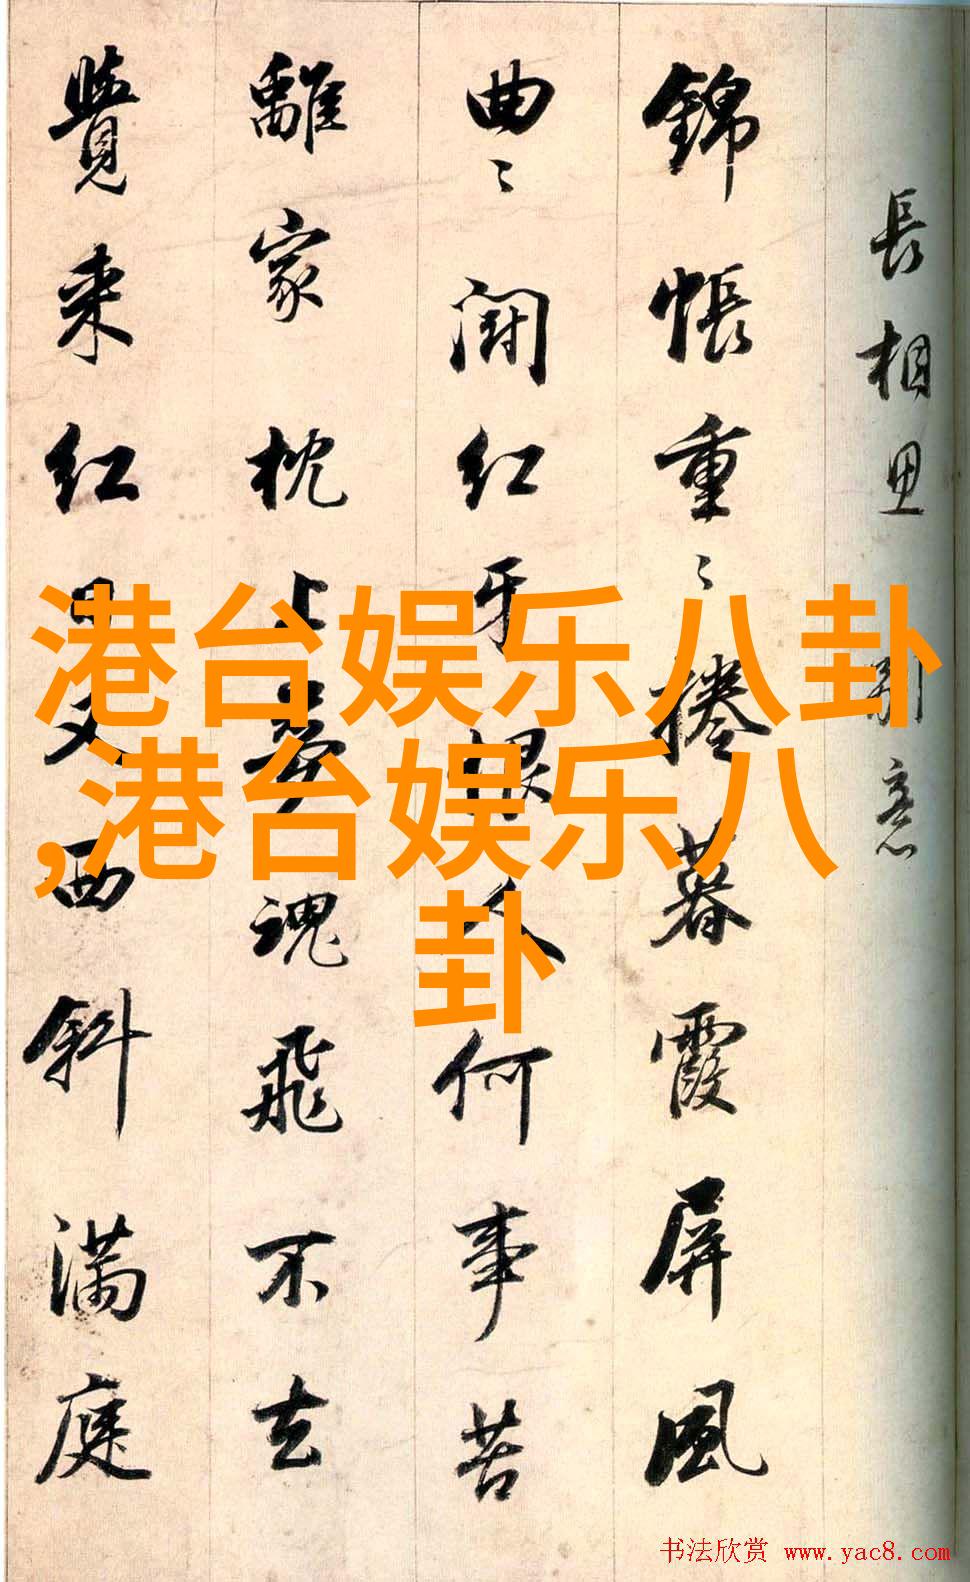 長相思 意
錦帳重〻捲暮霞屏風
曲〻鬪紅牙恨人何事苦
離家枕上夢魂飛不去
覺来紅日又西斜滿庭
港台娱乐八卦
,港台娱乐八
卦
书法欣赏 www.yac8.com